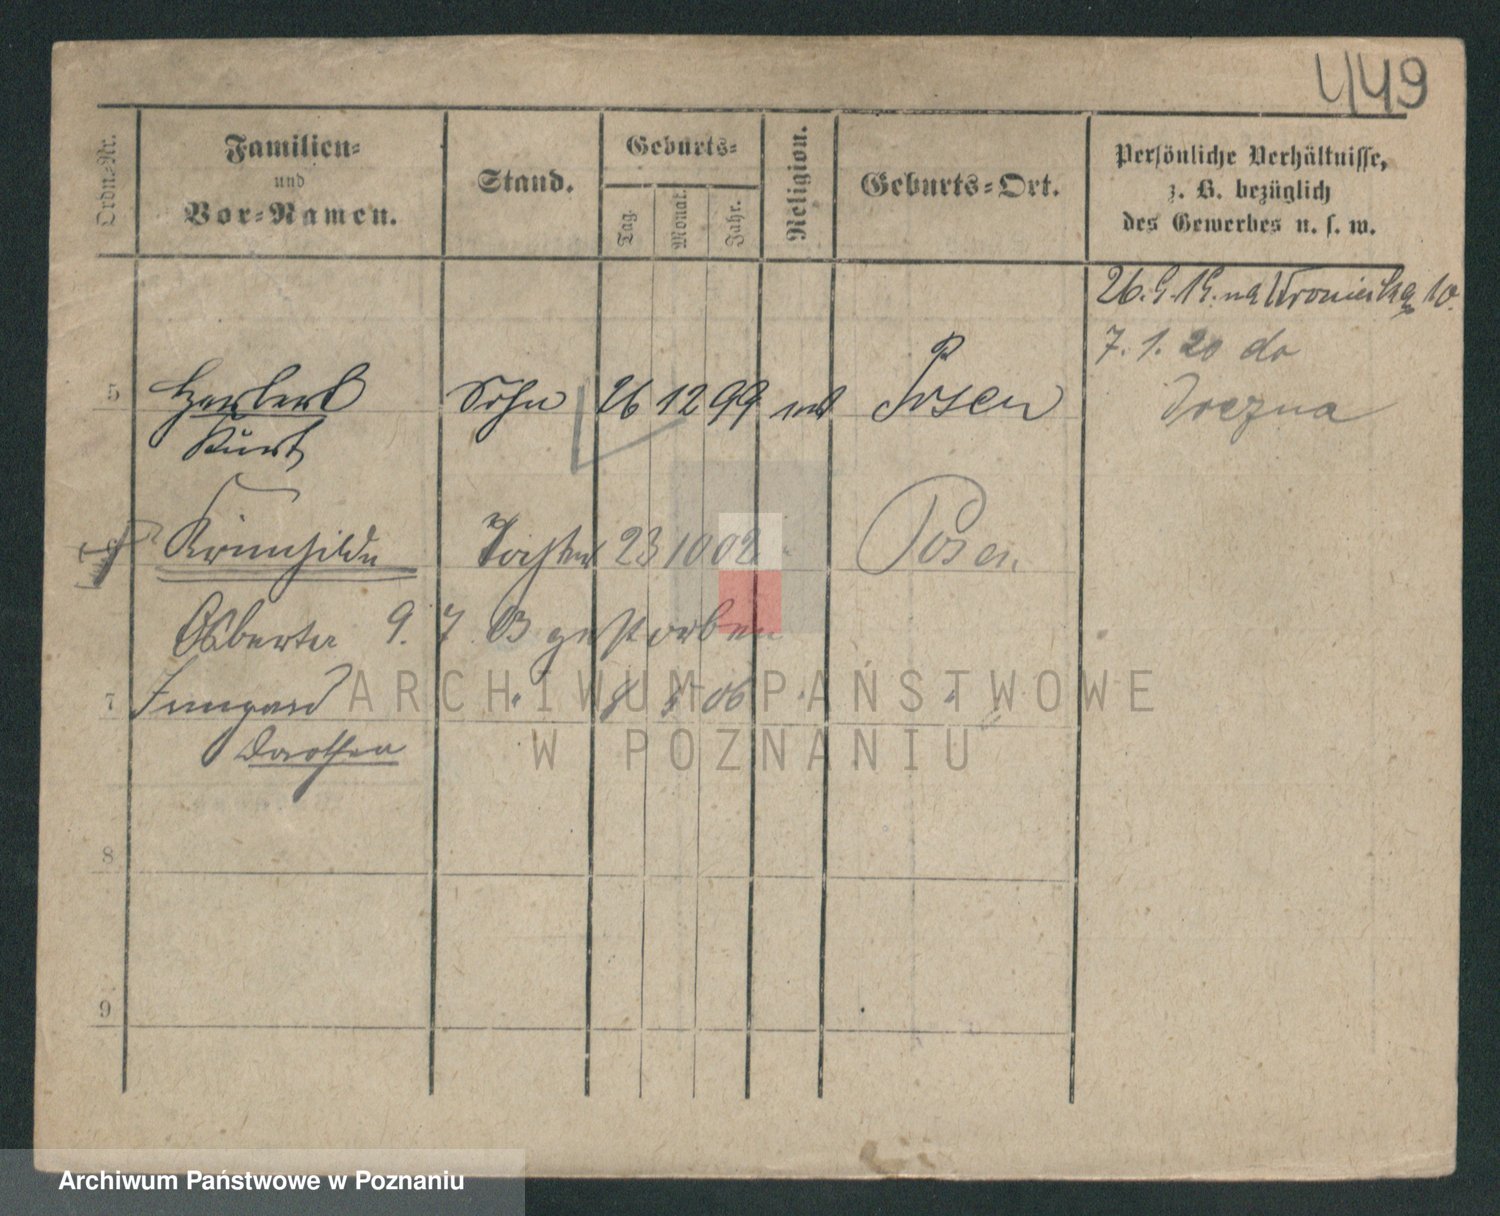 449
Ordn.-Nr.
Familien-
und
Vor-Namen.
Stand.
Geburts-
Tag.
Monat.
Jahr.
Religion.
Geburts-Ort.
Persönliche Verhältnisse,
z. B. bezüglich
des Gewerbes u. s. w.
26.9.19. na Wroniecką 10.
7.1.20 do
Drezna
5 Herbert Sohn 26 12 99 Posen
Kurt
6 Krimhilde Tochter 23 10 02 Posen
9. 7. 03 gestorben
7 Irmgard " 8 8 06 " "
Dorothea
8
9
ARCHIWUM PAŃSTWOWE
W POZNANIU
Archiwum Państwowe w Poznaniu